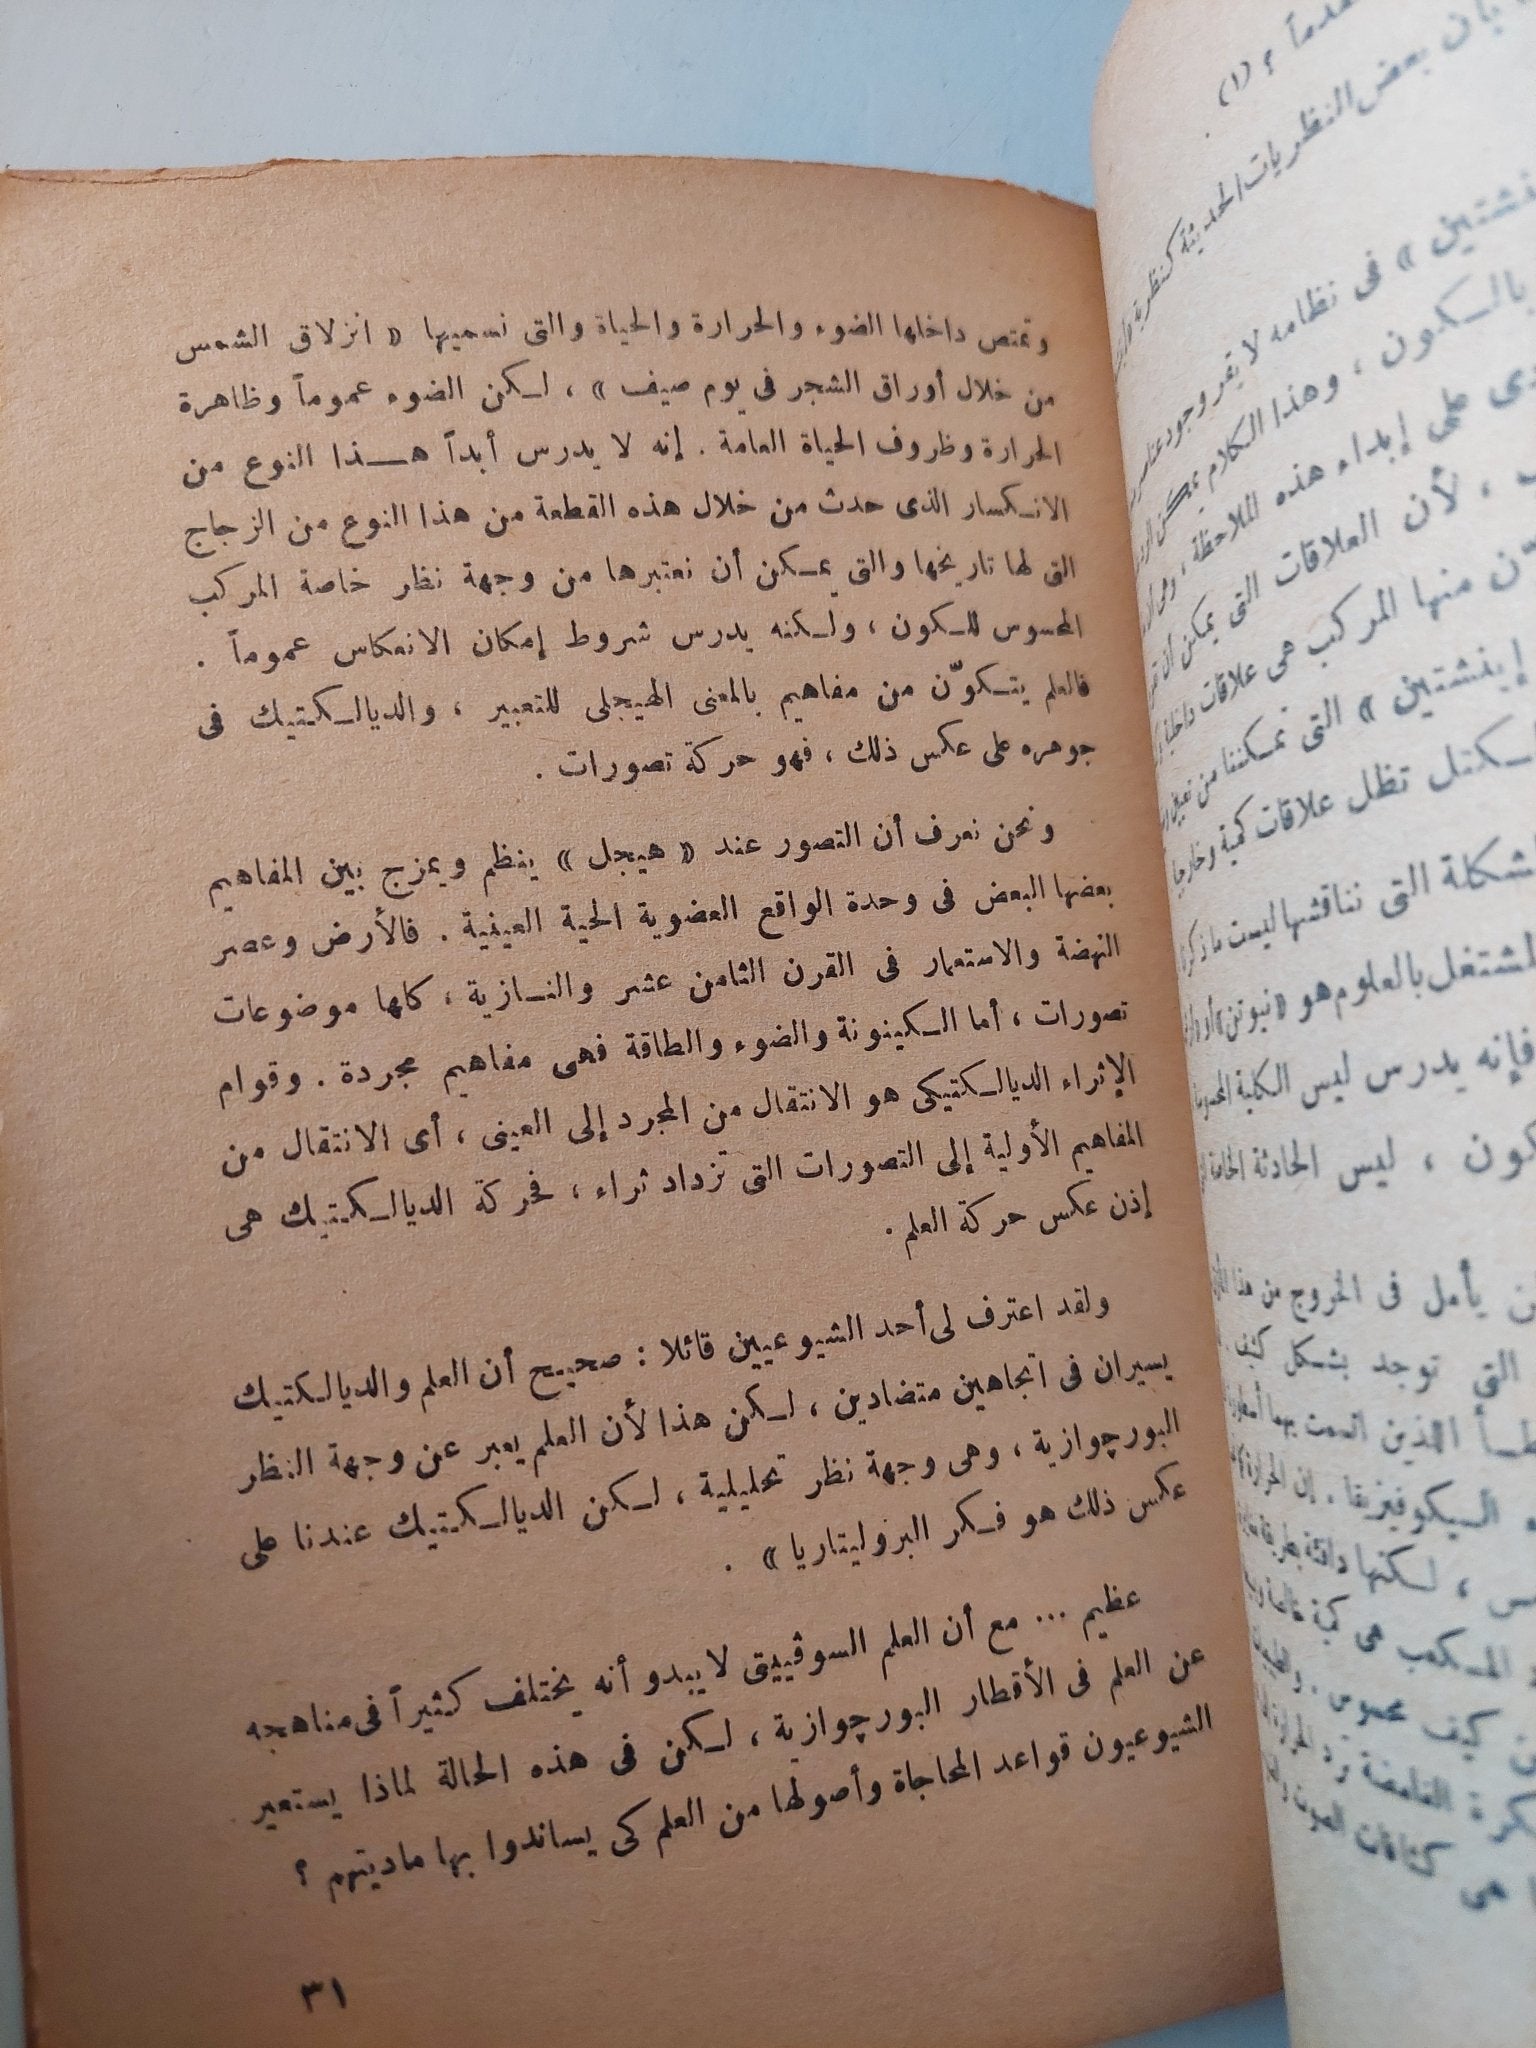 وتمتص داخلها الضوء والحرارة والحياة والتى نسميها « انزلاق الشمس
من خلال أوراق الشجر فى يوم صيف » ، لـكن الضوء عموماً وظاهرة
الحرارة وظروف الحياة العامة . إنه لا يدرس أبداً هـذا النوع من
الانـكسار الذى حدث من خلال هذه القطعة من هذا النوع من الزجاج
التى لها تاريخها والتى يمـكن أن نعتبرها من وجهة نظر خاصة المركب
المحسوس للـكون ، ولـكنه يدرس شروط إمكان الانعكاس عموماً .
فالعلم يتـكوّن من مفاهيم بالمعنى الهيجلى للتعبير ، والديالـكتيك فى
جوهره على عكس ذلك ، فهو حركة تصورات .
ونحن نعرف أن التصور عند « هيجل » ينظم ويمزج بين المفاهيم
بعضها البعض فى وحدة الواقع العضوية الحية العينية . فالأرض وعصر
النهضة والاستعمار فى القرن الثامن عشر والنـازية ، كلها موضوعات
تصورات ، أما الـكينونة والضوء والطاقة فهى مفاهيم مجردة . وقوام
الإثراء الديالـكتيكى هو الانتقال من المجرد إلى العينى ، أى الانتقال من
المفاهيم الأولية إلى التصورات التى تزداد ثراء ، فحركة الديالـكتيك هى
إذن عكس حركة العلم .
ولقد اعترف لى أحد الشيوعيين قائلا : صحيح أن العلم والديالـكتيك
يسيران فى اتجاهين متضادين ، لـكن هذا لأن العلم يعبر عن وجهة النظر
البورچوازية ، وهى وجهة نظر تحليلية ، لـكن الديالـكتيك عندنا على
عكس ذلك هو فـكر البروليتاريا » .
عظيم ... مع أن العلم السوڤييتى لا يبدو أنه يختلف كثيراً فى مناهجه
عن العلم فى الأقطار البورچوازية ، لـكن فى هذه الحالة لماذا يستعير
الشيوعيون قواعد المحاجاة وأصولها من العلم كى يساندوا بها ماديتهم ؟
٣١
(١) .
بأن بعض النظريات الحديثة كنظرية
» فى نظامه لا يقر وجود عناصر
بالـكون ، وهذا الكلام يمكن
على إبداء هذه الملاحظة ،
، لأن العلاقات التى يمكن أن
منها المركب هى علاقات داخلية
إينشتين » التى تمـكننا من
تظل علاقات كمية وخارجية
التى نناقشها ليست ما ذكر
المشتغل بالعلوم هو « نيوتن » أو
فإنه يدرس ليس الكلية
، ليس الحادثة
يأمل فى الخروج من هذا
التى توجد بشكل كثيف
اللذين اتسمت بهما
السيكوفيزيقا . إن الحرارة
، لـكنها دافئة بطريقة
المـكعب هى
كيف محسوس .
الغامضة
هى كثافات الصوت